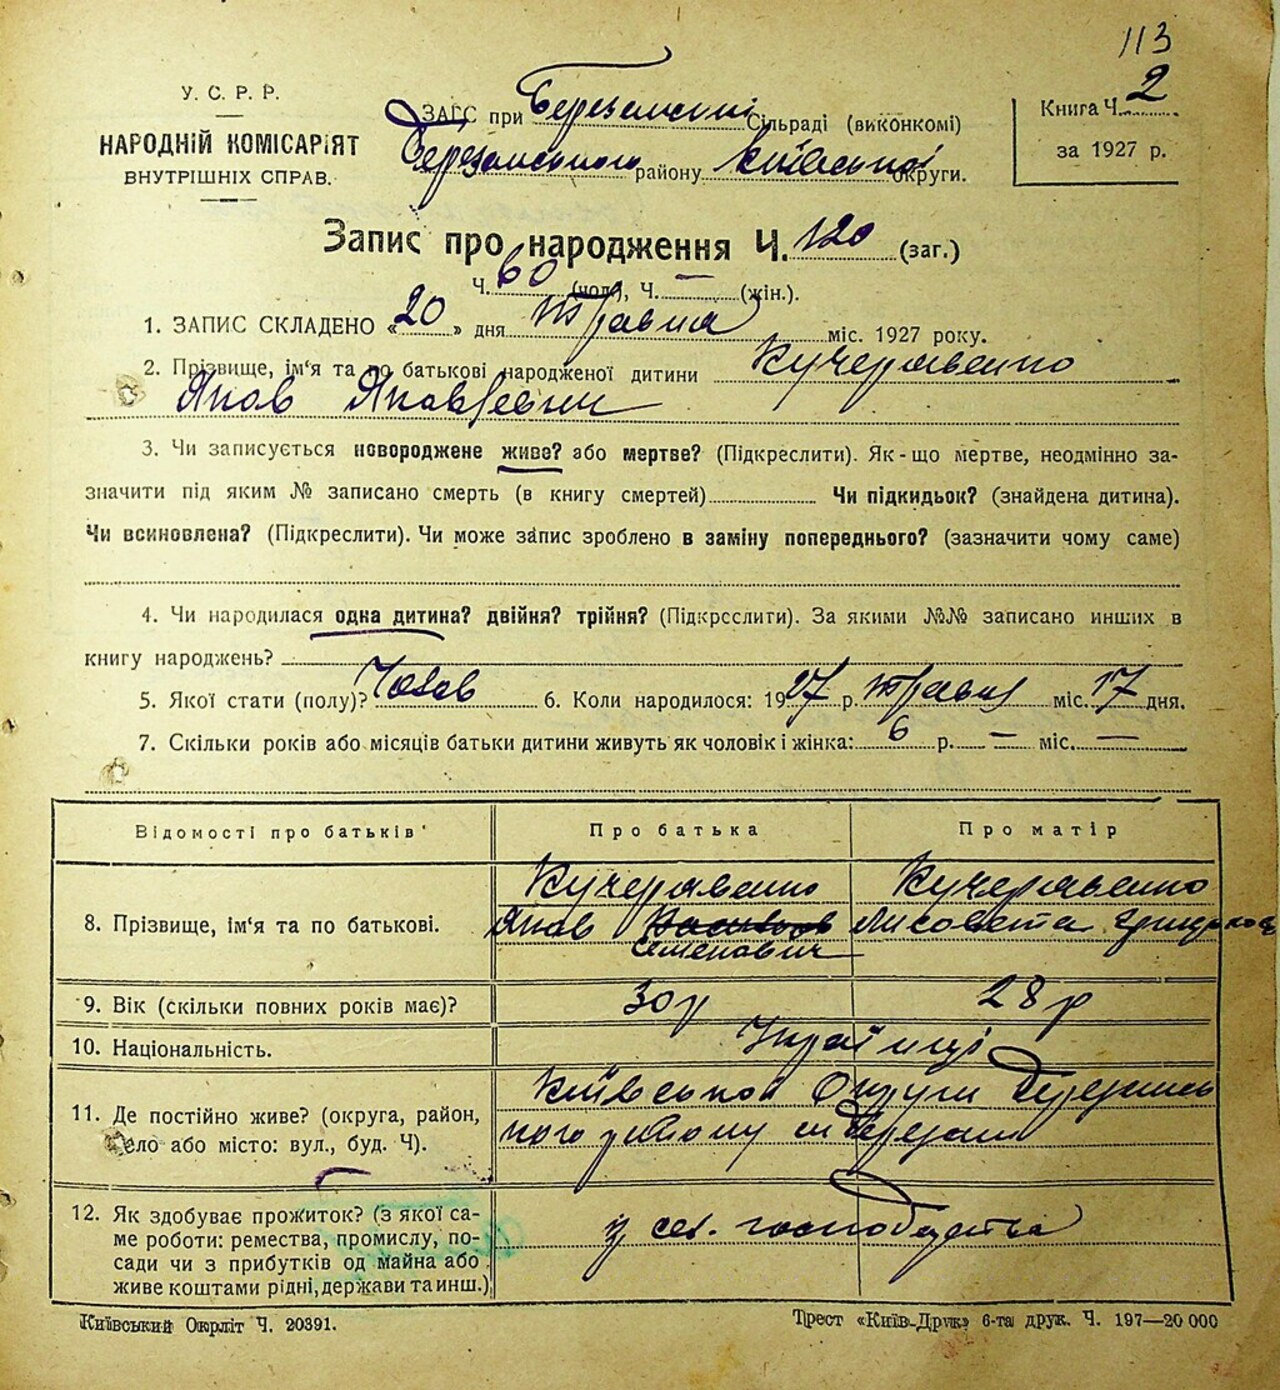 113
У. С. Р. Р.
НАРОДНІЙ КОМІСАРІЯТ
ВНУТРІШНІХ СПРАВ.
ЗАГС при Березанській Сільраді (виконкомі)
Березанського району Київської округи.
Книга Ч. 2
за 1927 р.
Запис про народження Ч. 120 (заг.)
Ч. 60 (чол.), Ч. — (жін.).
1. ЗАПИС СКЛАДЕНО «20» дня травня міс. 1927 року.
2. Прізвище, ім'я та по батькові народженої дитини Кучеравенко
Яков Яковлевич
3. Чи записується новороджене живе? або мертве? (Підкреслити). Як-що мертве, неодмінно за-
значити під яким № записано смерть (в книгу смертей) Чи підкидьок? (знайдена дитина).
Чи всиновлена? (Підкреслити). Чи може запис зроблено в заміну попереднього? (зазначити чому саме)
4. Чи народилася одна дитина? двійня? трійня? (Підкреслити). За якими №№ записано инших в
книгу народжень?
5. Якої стати (полу)? Чолов 6. Коли народилося: 1927 р. травня міс. 17 дня.
7. Скільки років або місяців батьки дитини живуть як чоловік і жінка: 6 р. — міс. —
Відомості про батьків Про батька Про матір
8. Прізвище, ім'я та по батькові.
Кучеравенко Кучеравенко
Яков Семенович Лисовета
9. Вік (скільки повних років має)? 30 р 28 р
10. Національність. Українці
11. Де постійно живе? (округа, район,
село або місто: вул., буд. Ч).
Київської Округи Березансь
кого району м Березань
12. Як здобуває прожиток? (з якої са-
ме роботи: ремества, промислу, по-
сади чи з прибутків од майна або
живе коштами рідні, держави та инш.)
з сел. господарства
Київський Окрліт Ч. 20391.
Трест «Київ-Друк» 6-та друк. Ч. 197—20 000